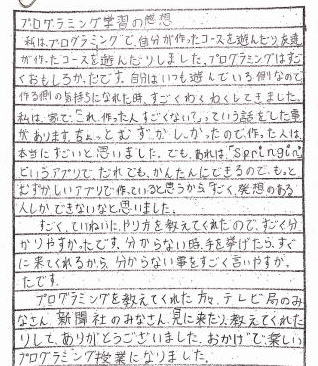 プログラミング学習の感想
私は、プログラミングで、自分が作ったコースを遊んだり、友達
が作ったコースを遊んだりしました。プログラミングはすご
くおもしろかったです。自分はいつも遊んでいる側なので
作る側の気持ちになれた時、すごくわくわくしてきました。
私は、家で、これ、作った人すごくない?っていう話をした事
があります。ちょっとむずかしかったので、作った人は、
本当にすごいと思いました。でも、あれは、「Springin」
というアプリで、だれでも、かんたんにできるので、もっと
むずかしいアプリで作っていると思うからすごく、発想のある
人しかできないなと思いました。
すごく、ていねいに、やり方を教えてくれたので、すごく分
かりやすかったです。分からない時、手を挙げたら、すぐ
に来てくれるから、分からない事をすごく言いやすか
たです。
プログラミングを教えてくれた方々、テレビ局のみ
なさん、新聞社のみなさん、見に来たり、教えてくれた
りして、ありがとうございました。おかげで、楽しい
プログラミング授業になりました。